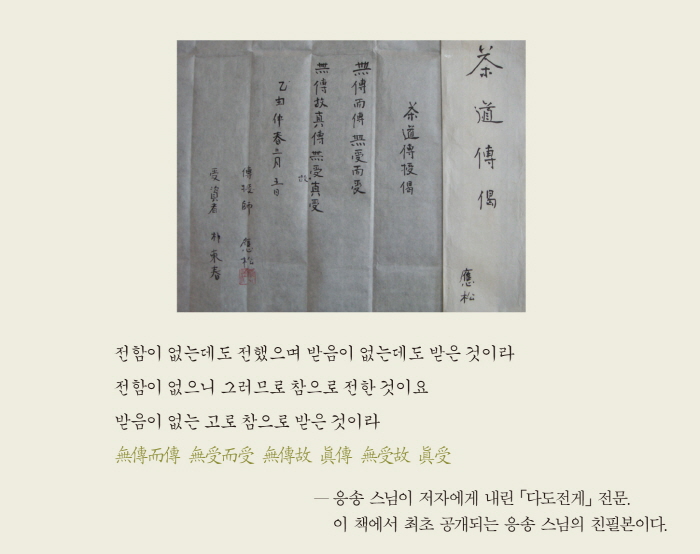 茶道傳偈
應松
茶道傳授偈
無傳而傳 無受而受
無傳故真傳 無受故真受
乙丑 春三月 五日
傳授師 應松
受資者 朴東春
전함이 없는데도 전했으며 받음이 없는데도 받은 것이라
전함이 없으니 그러므로 참으로 전한 것이요
받음이 없는 고로 참으로 받은 것이라
無傳而傳 無受而受 無傳故 眞傳 無受故 眞受
— 응송 스님이 저자에게 내린 「다도전게」 전문.
이 책에서 최초 공개되는 응송 스님의 친필본이다.